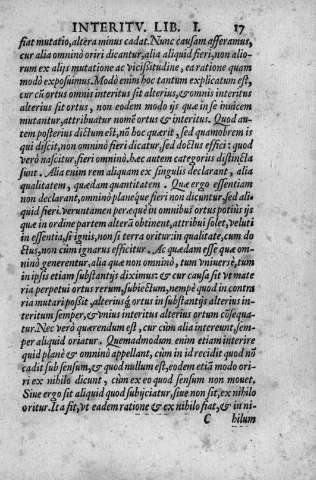 INTERITV. LIB. I. 17
fiat mutatio, altera minus cadat. Nunc causam afferamus,
cur alia omninò oriri dicantur, alia aliquid fieri, non alio-
rum ex alijs mutatione ac vicissitudine, ea ratione quam
modò exposuimus. Modò enim hoc tantum explicatum est,
cur cũ ortus omnis interitus sit alterius, & omnis interitus
alterius sit ortus, non eodem modo ijs quæ in se inuicem
mutantur, attribuatur nomẽ ortus & interitus. Quod au-
tem posterius dictum est, nõ hoc quærit, sed quamobrem is
qui discit, non omninò fieri dicatur, sed doctus effici: quod
verò nascitur, fieri omninò. hæc autem categorijs distincta
sunt. Alia enim rem aliquam ex singulis declarant, alia
qualitatem, quædam quantitatem. Quæ ergo essentiam
non declarant, omninò planéque fieri non dicuntur, sed ali-
quid fieri. veruntamen peræquè in omnibus ortus potius ijs
quæ in ordine partem alterã obtinent, attribui solet, veluti
in essentia, si ignis, non si terra oritur: in qualitate, cum do
ctus, non cum ignarus efficitur. Ac quædam esse quæ om-
ninò generentur, alia quæ non omninò, tum vniuersè, tum
in ipsis etiam substantijs diximus & cur causa sit vt mate
ria perpetui ortus rerum, subiectum, nempè quod in contra
ria mutari possit, alteriusq́; ortus in substantijs alterius in-
teritum semper, & vnius interitus alterius ortum cõsequa-
tur. Nec verò quærendum est, cur cùm alia intereunt, sem-
per aliquid oriatur. Quemadmodum enim etiam interire
quid planè & omninò appellant, cùm in id recidit quod nõ
cadit sub sensum, & quod nullum est, eodem etiã modo ori-
ri ex nihilo dicunt, cùm ex eo quod sensum non mouet.
Siue ergo sit aliquid quod subijciatur, siue non sit, ex nihilo
oritur. Ita fit, vt eadem ratione & ex nihilo fiat, & in ni-
C hilum